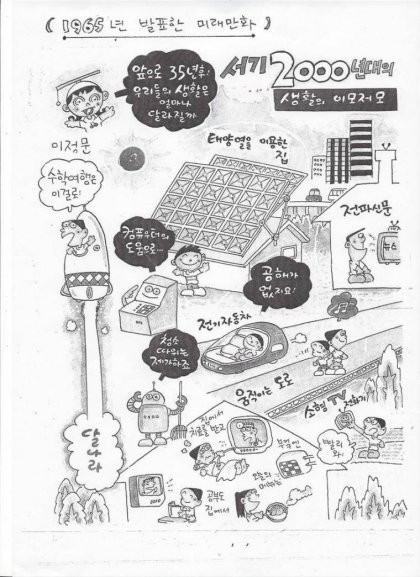 ( 1965년 발표한 미래만화 )
앞으로 35년후!
우리들의 생활은
얼마나
달라질까
서기 2000년대의
생활의 이모저모
이정문
수학여행은
이걸로!
태양열을 이용한
집
전파신문
뉴스
컴퓨우터의
도움으로...
공해가
없지요!
전기자동차
청소
따위는
제가하죠
움직이는 도로
소형 TV 전화기
빨리
와!
집에서
치료를 받고
부엌엔
오늘의
메뉴는
공부도
집에서
달나라